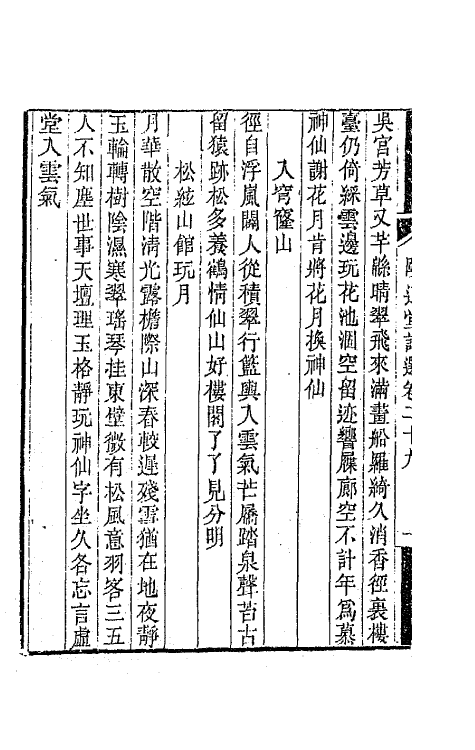 吳宫芳草又芊緜晴翠飛來滿畫船羅綺久消香徑裏樓
臺仍倚綵雲邊玩花池涸空留迹響屧廊空不計年爲慕
神仙謝花月肯將花月換神仙
入穹窿山
徑自浮嵐闢人從積翠行籃輿入雲氣芒屩踏泉聲苔古
留猿跡松多養鶴情仙山好樓閣了了見分明
松絃山館玩月
月華散空階清光露檐際山深春較遲殘雪猶在地夜靜
玉輪轉樹陰濕寒翠瑤琴挂東壁微有松風意羽客三五
人不知塵世事天壇理玉格靜玩神仙字坐久各忘言虛
堂入雲氣
堂詩選卷二十九
一